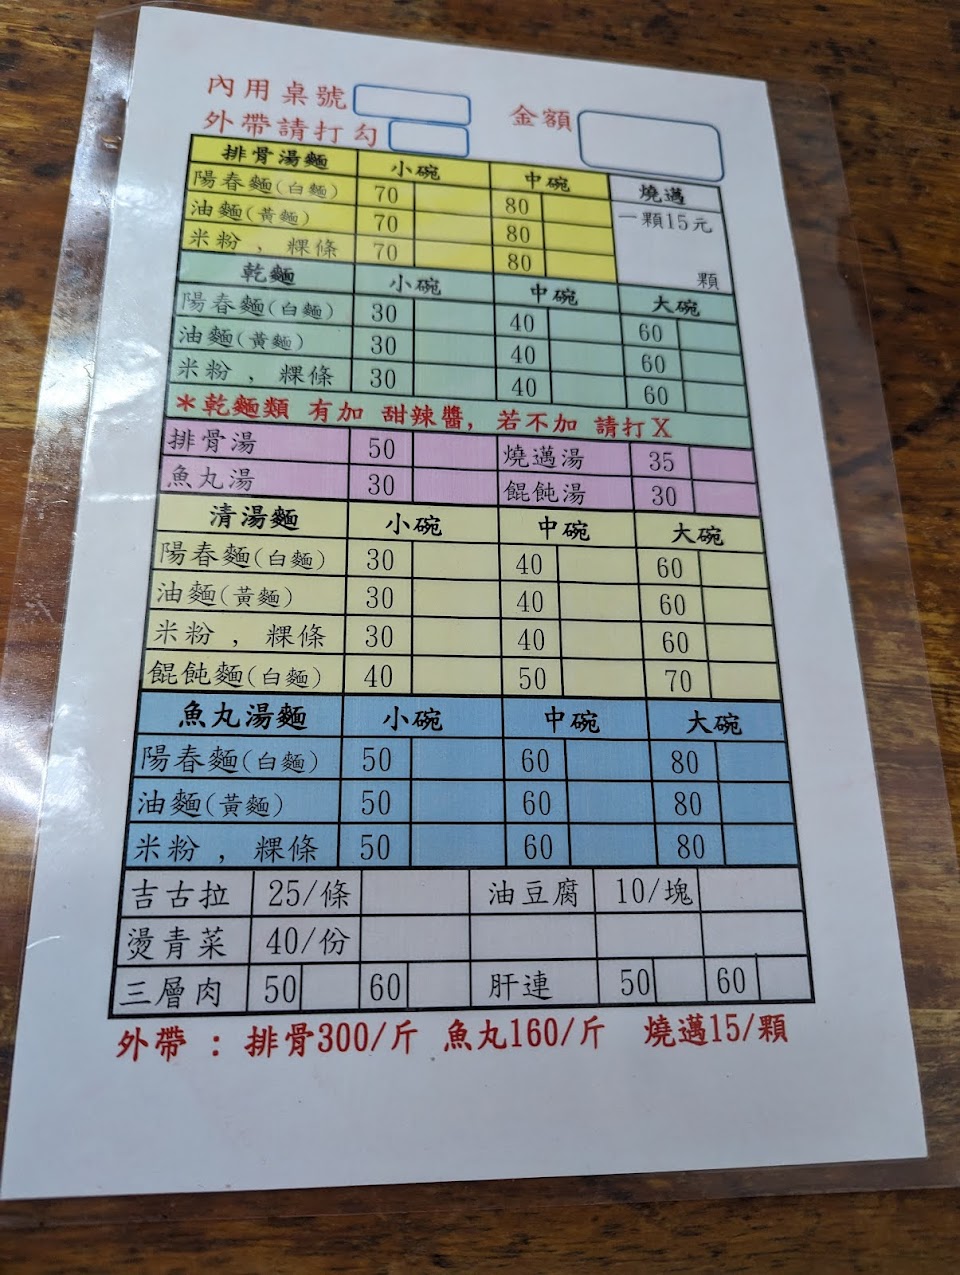 內用桌號 金額
外帶請打勾
排骨湯麵 小碗 中碗 燒邁
陽春麵(白麵) 70 80 一顆15元
油麵(黃麵) 70 80
米粉 , 粿條 70 80 顆
乾麵 小碗 中碗 大碗
陽春麵(白麵) 30 40 60
油麵(黃麵) 30 40 60
米粉 , 粿條 30 40 60
*乾麵類 有加 甜辣醬, 若不加 請打X
排骨湯 50 燒邁湯 35
魚丸湯 30 餛飩湯 30
清湯麵 小碗 中碗 大碗
陽春麵(白麵) 30 40 60
油麵(黃麵) 30 40 60
米粉 , 粿條 30 40 60
餛飩麵(白麵) 40 50 70
魚丸湯麵 小碗 中碗 大碗
陽春麵(白麵) 50 60 80
油麵(黃麵) 50 60 80
米粉 , 粿條 50 60 80
吉古拉 25/條 油豆腐 10/塊
燙青菜 40/份
三層肉 50 60 肝連 50 60
外帶 : 排骨300/斤 魚丸160/斤 燒邁15/顆